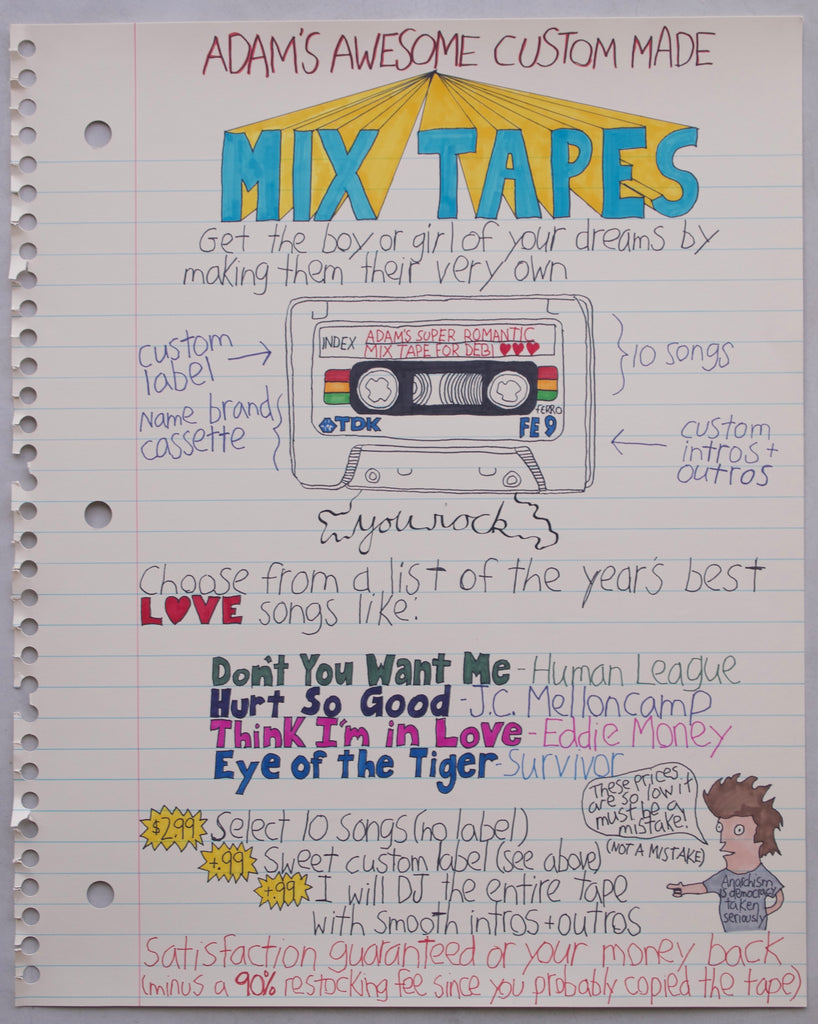 ADAM'S AWESOME CUSTOM MADE
MIX TAPES
Get the boy or girl of your dreams by
making them their very own
custom
label
Name brand
cassette
INDEX
ADAM'S SUPER ROMANTIC
MIX TAPE FOR DEBI ♥♥♥
FERRO
TDK
FE 9
10 songs
custom
intros +
outros
you rock
Choose from a list of the year's best
L♥VE songs like:
Don't You Want Me - Human League
Hurt So Good - J.C. Melloncamp
Think I'm in Love - Eddie Money
Eye of the Tiger - Survivor
These prices
are so low it
must be a
mistake!
(NOT A MISTAKE)
Anarchism
is democracy
taken
seriously
$2.99 Select 10 songs (no label)
+.99 Sweet custom label (see above)
+.99 I will DJ the entire tape
with smooth intros + outros
Satisfaction guaranteed or your money back
(minus a 90% restocking fee since you probably copied the tape)